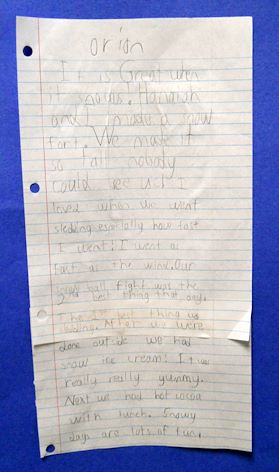 orion
It is Great when
it snows. Hannah
and I made a snow
fort. We made it
so tall nobody
could see us! I
loved when we went
sledding especially how fast
I went! I went as
fast as the wind. Our
snow ball fight was the
2nd best thing that day.
The 1st best thing was
sledding. After we were
done outside we had
snow ice cream! It was
really really yummy.
Next we had hot cocoa
with lunch. Snowy
days are lots of fun.